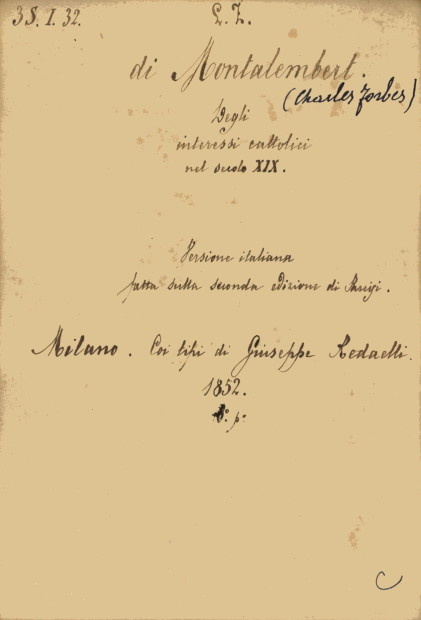 38. I. 32.
di Montalembert.
(Charles Forbes)
Degli
interessi cattolici
nel secolo XIX.
Versione italiana
fatta sulla seconda edizione di Parigi.
Milano. Coi tipi di Giuseppe Redaelli.
1852.
8.° p.°
C